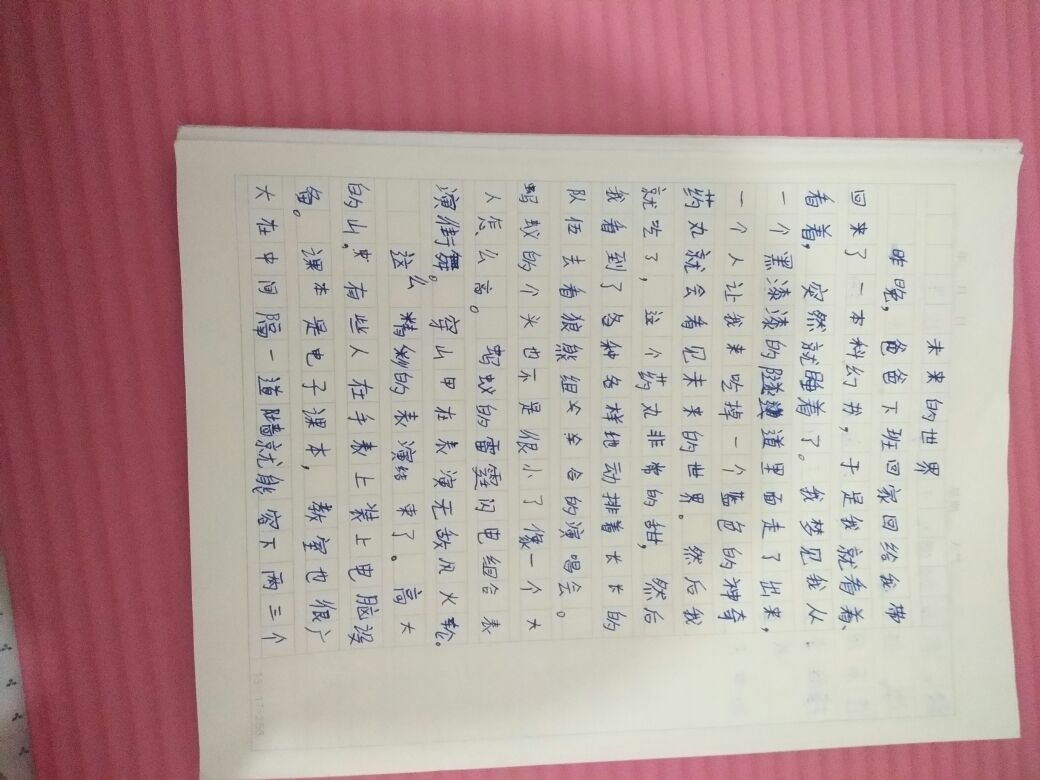 未来的世界
昨晚，爸爸下班回家回给我带
回来了一本科幻书，于是我就看着、
看着，突然就睡着了。我梦见我从
一个黑漆漆的隧道里面走了出来，
一个人让我来吃掉一个蓝色的神奇
药丸就会看见未来的世界。然后我
就吃了，这个药丸非常的甜，然后
我看到了各种各样地动排着长长的
队伍去看狼熊组合的演唱会。
蚂蚁的个头也不是很小了像一个大
人怎么高。蚂蚁的雷霆闪电组合表
演街舞。穿山甲在表演无敌风火轮。
这么精彩的表演结束了。高大
的山，有些人在手表上装上电脑设
备。课本是电子课本，教室也很广
大在中间隔一道墙就能容下两三个